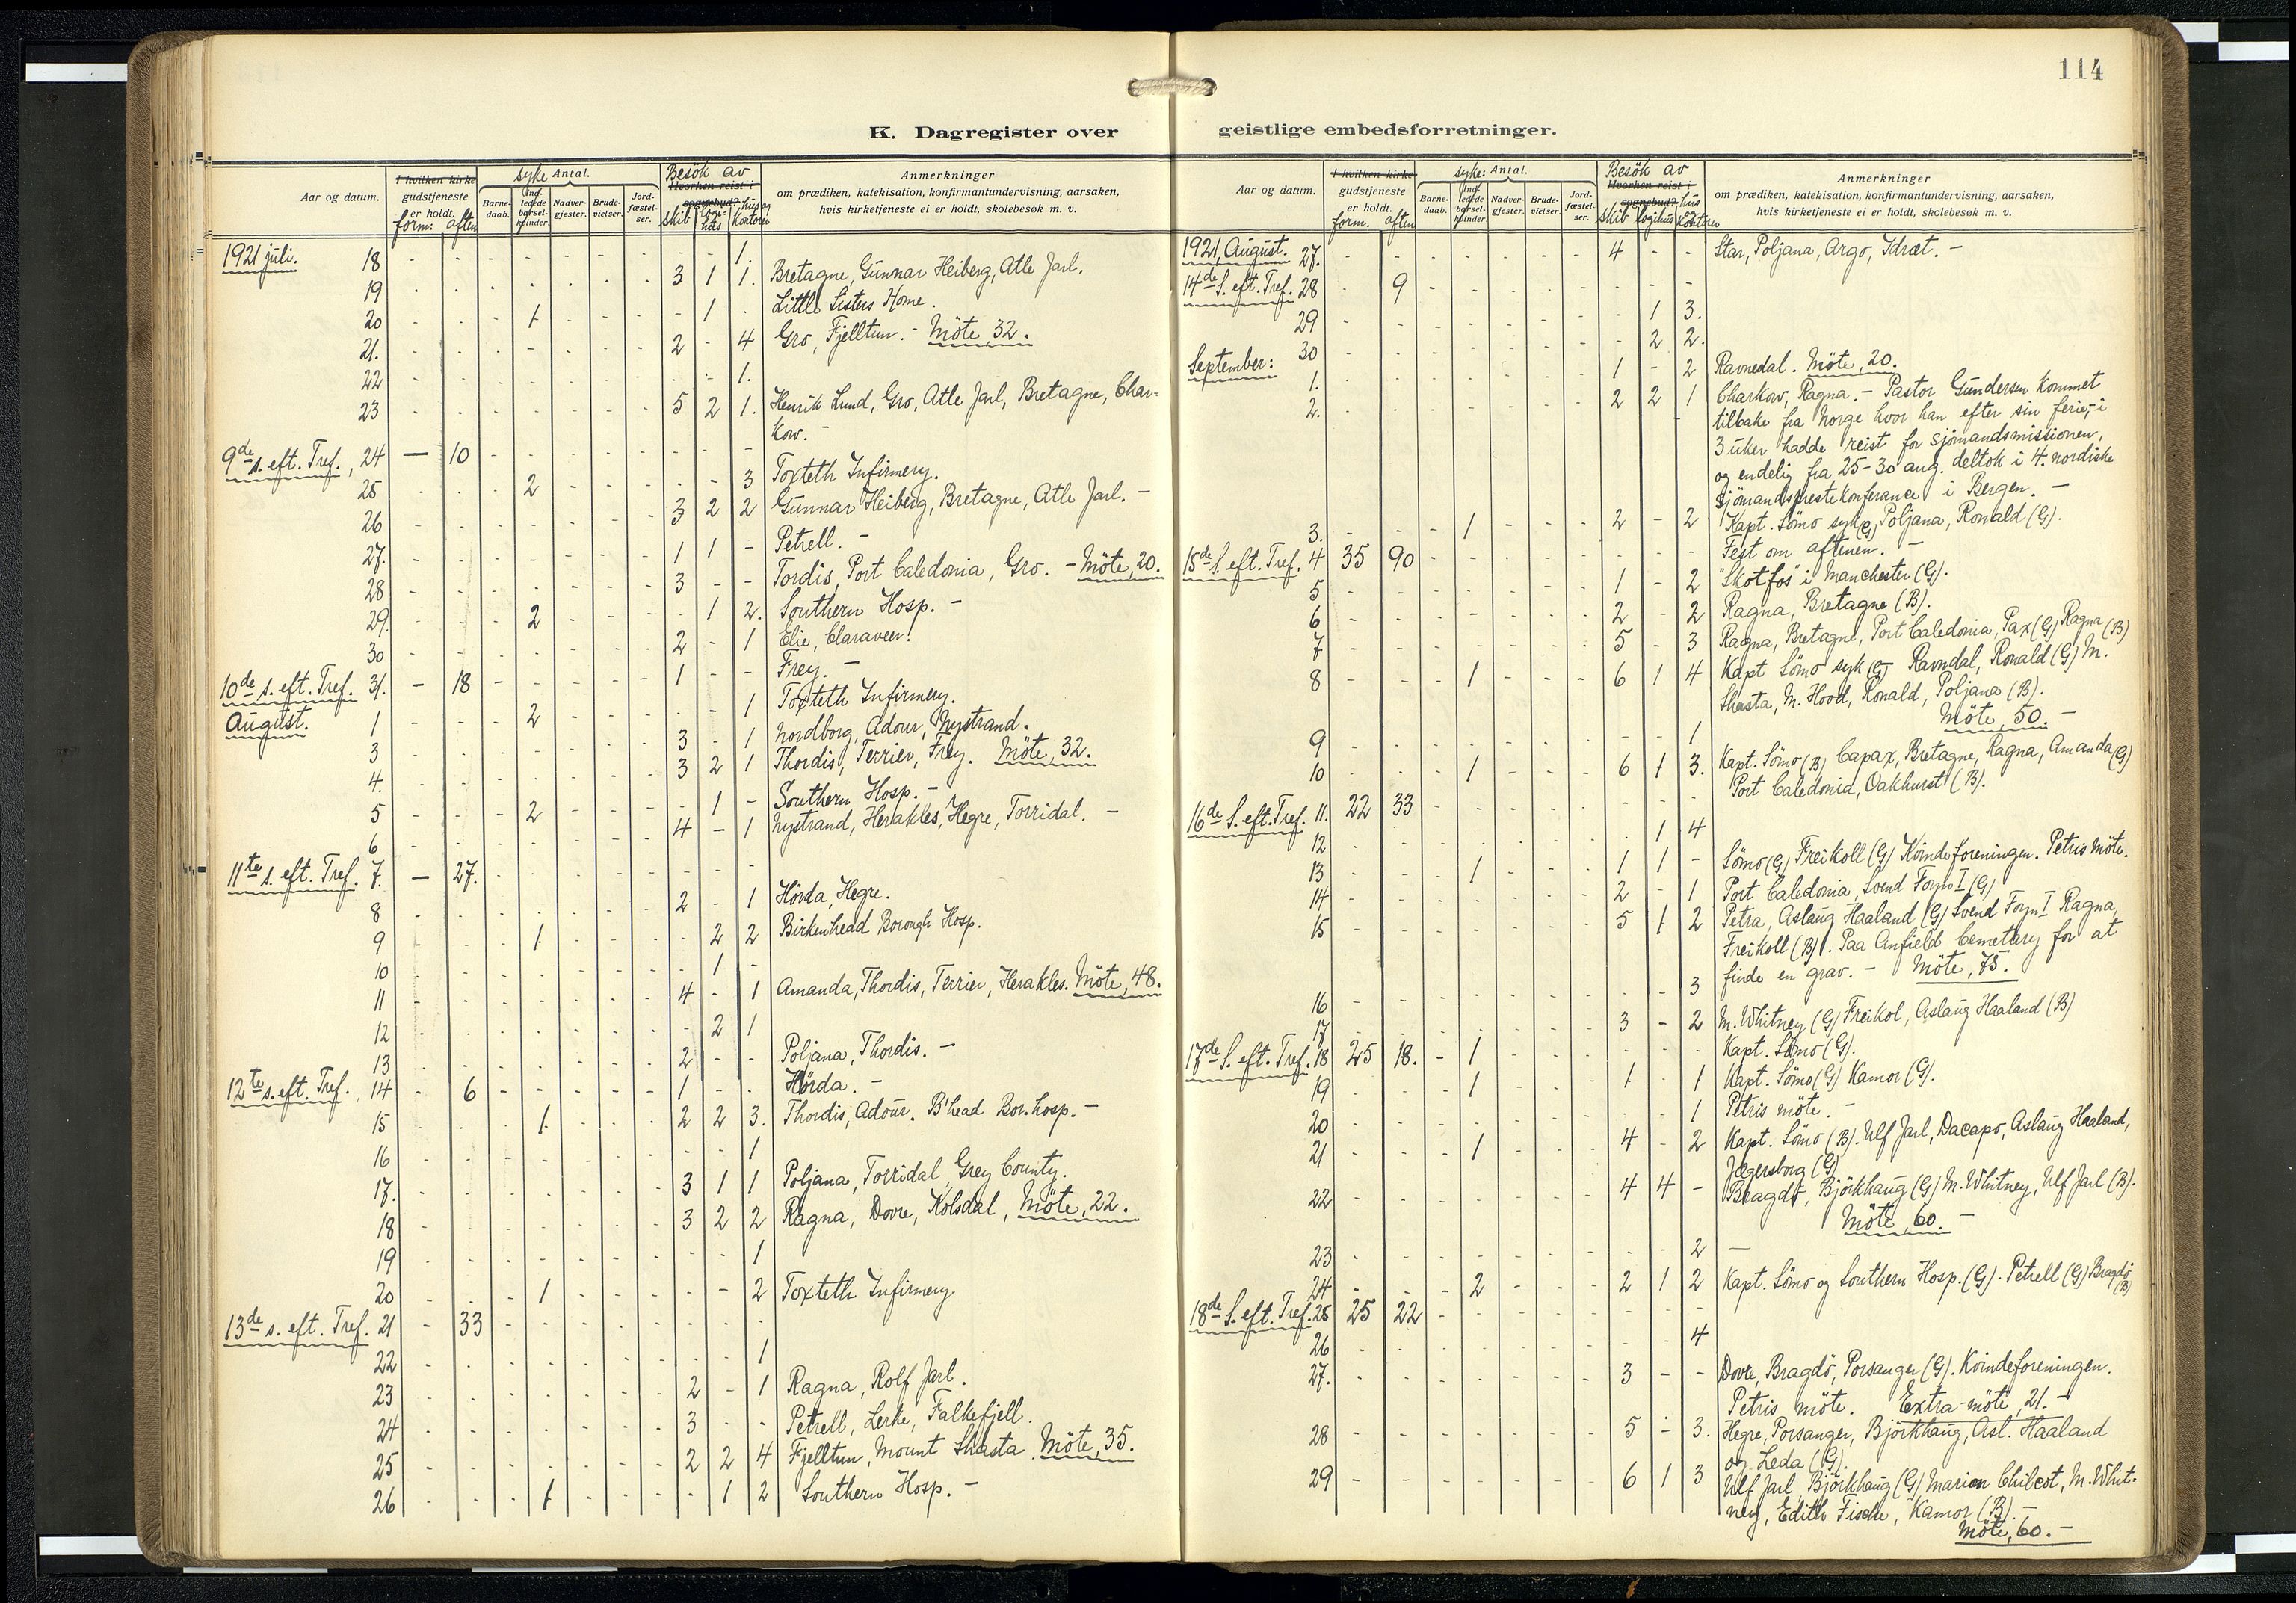 114
K. Dagregister over geistlige embedsforretninger.
Aar og datum. I hvilken kirke gudstjeneste er holdt. form: aften syke Antal. Barne-daab. Ind-ledede barsel-kvinder. Nadver-gjester. Brude-vielser. Jord-fæstel-ser. Besök av Hvorhen reist i sognebud? skib logi-hus hus og kontorer Anmerkninger om prædiken, katekisation, konfirmantundervisning, aarsaken, hvis kirketjeneste ei er holdt, skolebesøk m. v.
1921 juli. 18 - - - - - - - - - 1.
19 - - - - - - - 3 1 1. Bretagne, Gunnar Heiberg, Atle Jarl.
20 - - - 1 - - - - 1 - Little Sisters Home.
21. - - - - - - - 2 - 4 Gro, Fjelltun. - Möte, 32.
22 - - - - - - - - - 1.
23 - - - - - - - 5 2 1. Henrik Lund, Gro, Atle Jarl, Bretagne, Char-
kow. -
9de s. eft. Tref., 24 — 10 - - - - - - - -
25 - - - 2 - - - - - 3 Toxteth Infirmery.
26 - - - - - - - 3 2 2 Gunnar Heiberg, Bretagne, Atle Jarl. -
27. - - - - - - - 1 1 - Petrell. -
28 - - - - - - - 3 - - Tordis, Port Caledonia, Gro. - Möte, 20.
29. - - - 2 - - - - 1 2. Southern Hosp. -
30 - - - - - - - 2 - 1 Elie, Claraveer.
10de s. eft. Tref. 31. - 18 - - - - - 1 - - Frey. -
August. 1 - - - 2 - - - - - 1 Toxteth Infirmery.
3 - - - - - - - 3 - 1 Nordborg, Adour, Nystrand.
4. - - - - - - - 3 2 1 Thordis, Terrier, Frey. Möte, 32.
5 - - - 2 - - - - 1 - Southern Hosp. -
6 - - - - - - - 4 - 1 Nystrand, Herakles, Hegre, Torridal. -
11te s. eft. Tref. 7. — 27. - - - - - - - -
8 - - - - - - - 2 - 1 Hörda, Hegre.
9 - - - 1 - - - - 2 2 Birkenhead Borough Hosp.
10 - - - - - - - - 1 -
11 - - - - - - - 4 - 1 Amanda, Thordis, Terrier, Herakles. Möte, 48.
12 - - - - - - - - 2 1
13 - - - - - - - 2 - - Poljana, Thordis. -
12te s. eft. Tref., 14 - 6 - - - - - 1 - - Hörda. -
15 - - - 1. - - - 2 2 3. Thordis, Adour. B'head Bor. hosp. -
16 - - - - - - - - - 1
17. - - - - - - - 3 1 1 Poljana, Torridal, Grey County.
18 - - - - - - - 3 2 2 Ragna, Dovre, Kolsdal, Möte, 22.
19 - - - - - - - - - 1
20 - - - 1 - - - - - 2 Toxteth Infirmery
13de s. eft. Tref. 21 - 33 - - - - - - - -
22 - - - - - - - - - 1
23 - - - - - - - 2 - 1 Ragna, Rolf Jarl.
24 - - - - - - - 3 - - Petrell, Lerke, Falkefjell.
25 - - - - - - - 2 2 4 Fjelltun, Mount Shasta. Möte, 35.
26 - - - 1 - - - - 1 2 Southern Hosp. -
Aar og datum. I hvilken kirke gudstjeneste er holdt. form. aften syke: Antal. Barne-daab. Ind-ledede barsel-kvinder. Nadver-gjester. Brude-vielser. Jord-fæstel-ser. Besök av Hvorhen reist i sognebud? skib logihus hus og kontorer Anmerkninger om prædiken, katekisation, konfirmantundervisning, aarsaken, hvis kirketjeneste ei er holdt, skolebesøk m. v.
1921, August. 27. - - - - - - - 4 - - Star, Poljana, Argo, Idræt. -
14de S. eft. Tref. 28 - 9 - - - - - - - -
29 - - - - - - - - 1 3.
30 - - - - - - - - 2 2.
September: 1. - - - - - - - 1 - 2 Ravnedal. Möte, 20.
2. - - - - - - - 2 2 1 Charkow, Ragna. - Pastor Gundersen kommet
tilbake fra Norge hvor han efter sin ferie, i
3 uker hadde reist for Sjömandsmissionen,
og endelig fra 25-30 aug. deltok i 4. nordiske
sjömandsprestekonferance i Bergen. -
3. - - - 1 - - - 2 - 2 Kapt. Sömo syk (G), Poljana, Ronald (G).
15de S. eft. Tref. 4 35 90 - - - - - - - - Fest om aftenen. -
5 - - - - - - - 1 - 2 "Skotfos" i Manchester (G).
6 - - - - - - - 2 - 2 Ragna, Bretagne (B).
7 - - - - - - - 5 - 3 Ragna, Bretagne, Port Caledonia, Pax (G) Ragna (B)
8 - - - 1 - - - 6 1 4 Kapt Sömo syk (G) Ravndal, Ronald (G) M.
Shasta, M. Hood, Ronald, Poljana (B).
Möte, 50. -
9 - - - - - - - - - 1
10 - - - 1 - - - 6 1 3. Kapt. Sömo (B) Capax, Bretagne, Ragna, Amanda (G)
Port Caledonia, Oakhurst (B).
16de S. eft. Tref. 11. 22 33 - - - - - - - -
12 - - - - - - - - 1 4
13 - - - 1 - - - 1 1 - Sömo (G) Freikoll (G) Kvindeforeningen. Petris möte.
14 - - - - - - - 2 - 1 Port Caledonia, Svend Foyn I (G)
15 - - - - - - - 5 1 2 Petra, Aslaug Haaland (G) Svend Foyn I Ragna,
Freikoll (B). Paa Anfield Cemetary for at
finde en grav. - Möte, 75.
16 - - - - - - - - - 3
17 - - - - - - - 3 - 2 M. Whitney (G) Freikol, Aslaug Haaland (B)
17de S. eft. Tref. 18 25 18. - 1 - - - - - - Kapt. Sömo (G).
19 - - - 1 - - - 1 - 1 Kapt. Sömo (G) Kamor (G).
20 - - - - - - - - - 1 Petris möte. -
21 - - - 1 - - - 4 - 2 Kapt. Sömo (B). Ulf Jarl, Dacapo, Aslaug Haaland,
Jægersborg (G)
22 - - - - - - - 4 4 - Bragdö, Björkhaug (G) M. Whitney, Ulf Jarl (B).
Möte, 60. -
23 - - - - - - - - - 2 —
24 - - - 2 - - - 2 1 2 Kapt. Sömo og Southern Hosp. (G). Petrell (G) Bragdö (B)
18de S. eft. Tref. 25 25 22 - - - - - - - -
26 - - - - - - - - - 4
27. - - - - - - - 3 - - Dovre, Bragdö, Porsanger (G). Kvindeforeningen.
Petris möte. Extra-möte, 21. -
28 - - - - - - - 5 - 3. Hegre, Porsanger, Björkhaug, Asl. Haaland
og Leda (G).
29 - - - - - - - 6 1 3 Ulf Jarl, Björkhaug (G) Marion Chilcot, M. Whit-
ney, Edith Fische, Kamor (B). -
Möte, 60. -